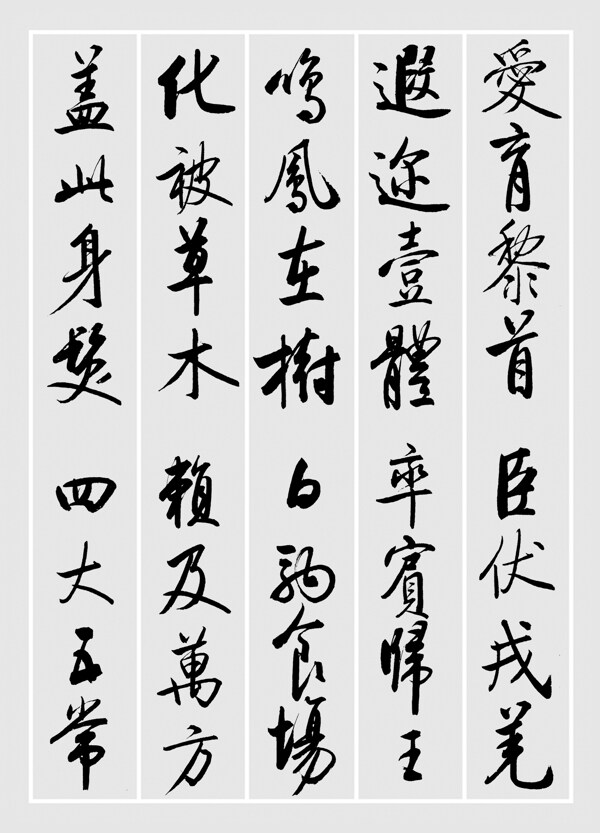 愛育黎首 臣伏戎羌
遐迩壹體 率賓歸王
鳴鳳在樹 白駒食場
化被草木 賴及萬方
盖此身髮 四大五常